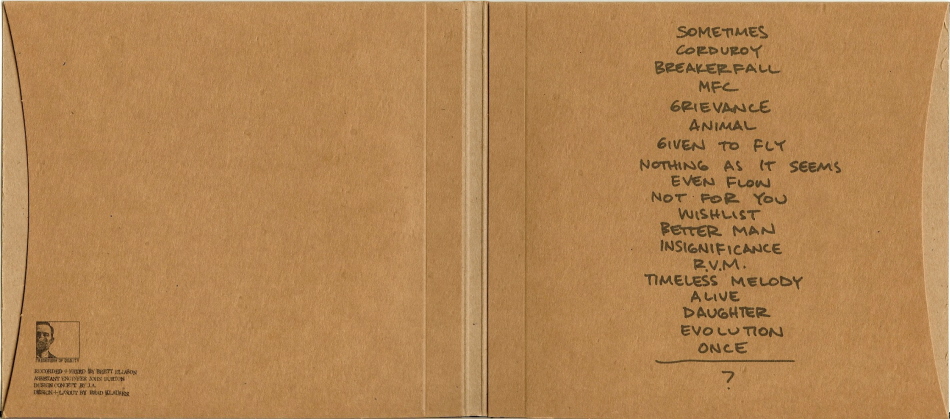 SOMETIMES
CORDUROY
BREAKERFALL
MFC
GRIEVANCE
ANIMAL
GIVEN TO FLY
NOTHING AS IT SEEMS
EVEN FLOW
NOT FOR YOU
WISHLIST
BETTER MAN
INSIGNIFICANCE
R.V.M.
TIMELESS MELODY
ALIVE
DAUGHTER
EVOLUTION
ONCE
?
RECORDED + MIXED BY BRETT ELIASON
ASSISTANT ENGINEER JOHN BURTON
DESIGN CONCEPT BY J.A.
DESIGN + LAYOUT BY BRAD KLAUSEN